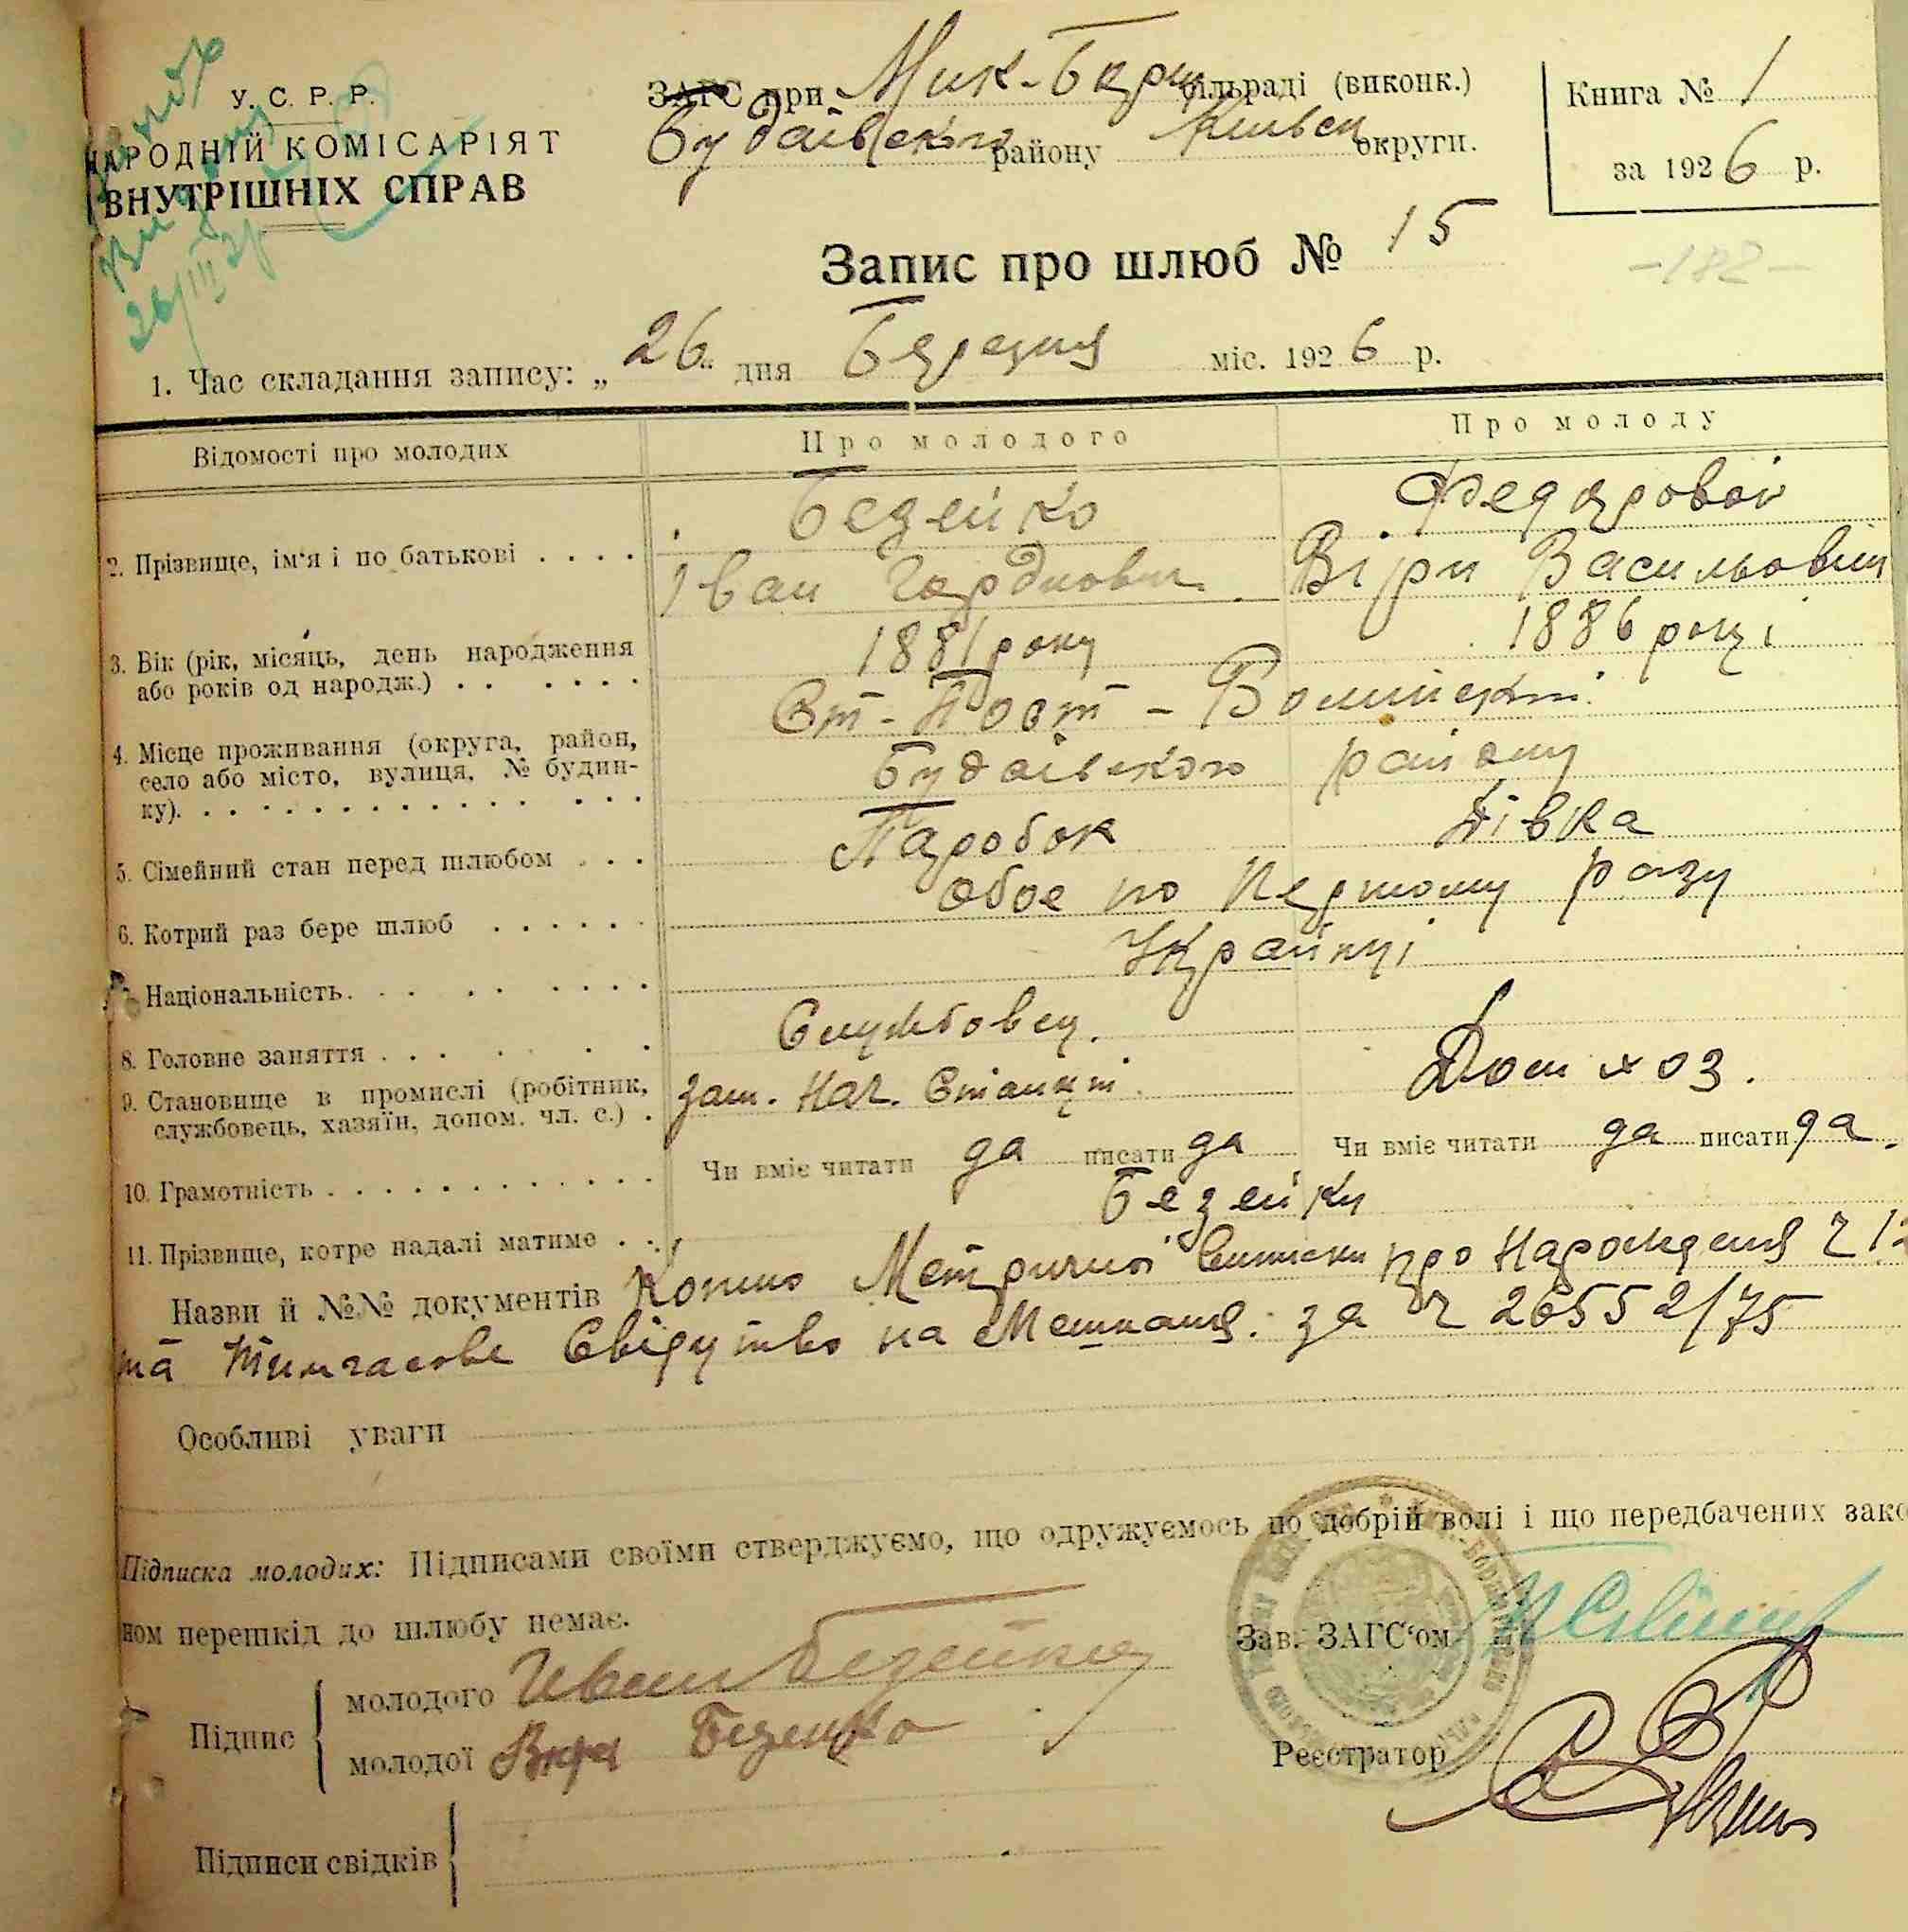 У. С. Р. Р.
НАРОДНІЙ КОМІСАРІЯТ
ВНУТРІШНІХ СПРАВ
26/III
ЗАГС при Мик-Борщ сільраді (виконк.)
Будаївського району Київськ округи.
Книга № 1
за 1926 р.
Запис про шлюб № 15
-182-
1. Час складання запису: „26„ дня Березня міс. 1926 р.
Відомості про молодих
Про молодого
Про молоду
2. Прізвище, ім'я і по батькові . . . .
Безейко
Іван Гордиович
Федоровой
Віри Васильовни
3. Вік (рік, місяць, день народження
або років од народж.) . . . . . .
1881 року
1886 році
4. Місце проживання (округа, район,
село або місто, вулиця, № будин-
ку). . . . . . . . . . . . . . .
Ст-Пост-Волинский
Будаівского району
5. Сімейний стан перед шлюбом . . .
Паробок
Дівка
6. Котрий раз бере шлюб . . . . . .
обое по Первому разу
7. Національність. . . . . . . . .
Українці
8. Головне заняття . . . . . .
Службовец.
9. Становище в промислі (робітник,
службовець, хазяїн, допом. чл. с.) .
зам. Нач. Станціі
Дом хоз.
10. Грамотність . . . . . . . . . . . .
Чи вміє читати да писати да
Чи вміє читати да писати да.
11. Прізвище, котре надалі матиме . . .
Безейки
Назви й №№ документів Копию Метричної Виписки про Нарождения ч 12
та Тимчасове Свідутво на Мешканя. за ч 26552/75
Особливі уваги
Підписка молодих: Підписами своїми стверджуємо, що одружуємось по добрій волі і що передбачених зако
ном перешкід до шлюбу немає.
Зав. ЗАГС'ом
Підпис
молодого Иван Безейко
молодої Вера Безейко
Реєстратор
Підписи свідків